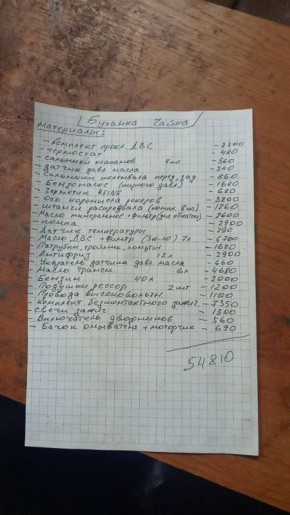 Буханка Чайка
Материалы:
- Комплект прокл. ДВС - 2200
- Термостат - 480
- Сальники клапанов 8 шт - 560
- Датчик давл. масла - 240
- Сальники коленвала перед, зад - 860
- Бензонасос (низкого давл.) - 1680
- Герметик REINS - 680
- Ось коромысла рокеров - 3800
- Масло минеральное + фильтр (для обкатки) - 2600
- помпа - 2900
- Датчик температуры
- Масло ДВС + фильтр (5w-40) 7л
- Патрубки, тройник, хомуты - 1680
- Антифриз 12л - 2900
- Указатель датчика давл. масла - 660
- Масло трансм. 6л - 4680
- Бензин 40л - 2000
- Подушки рессор 2 шт - 1200
- Провода высоковольтн. - 1100
- Комплект безконтактного зажиг. - 7350
- Свечи зажиг. - 1300
- Включатель дворников - 560
- Бачок омывателя + моторчик - 690
54810